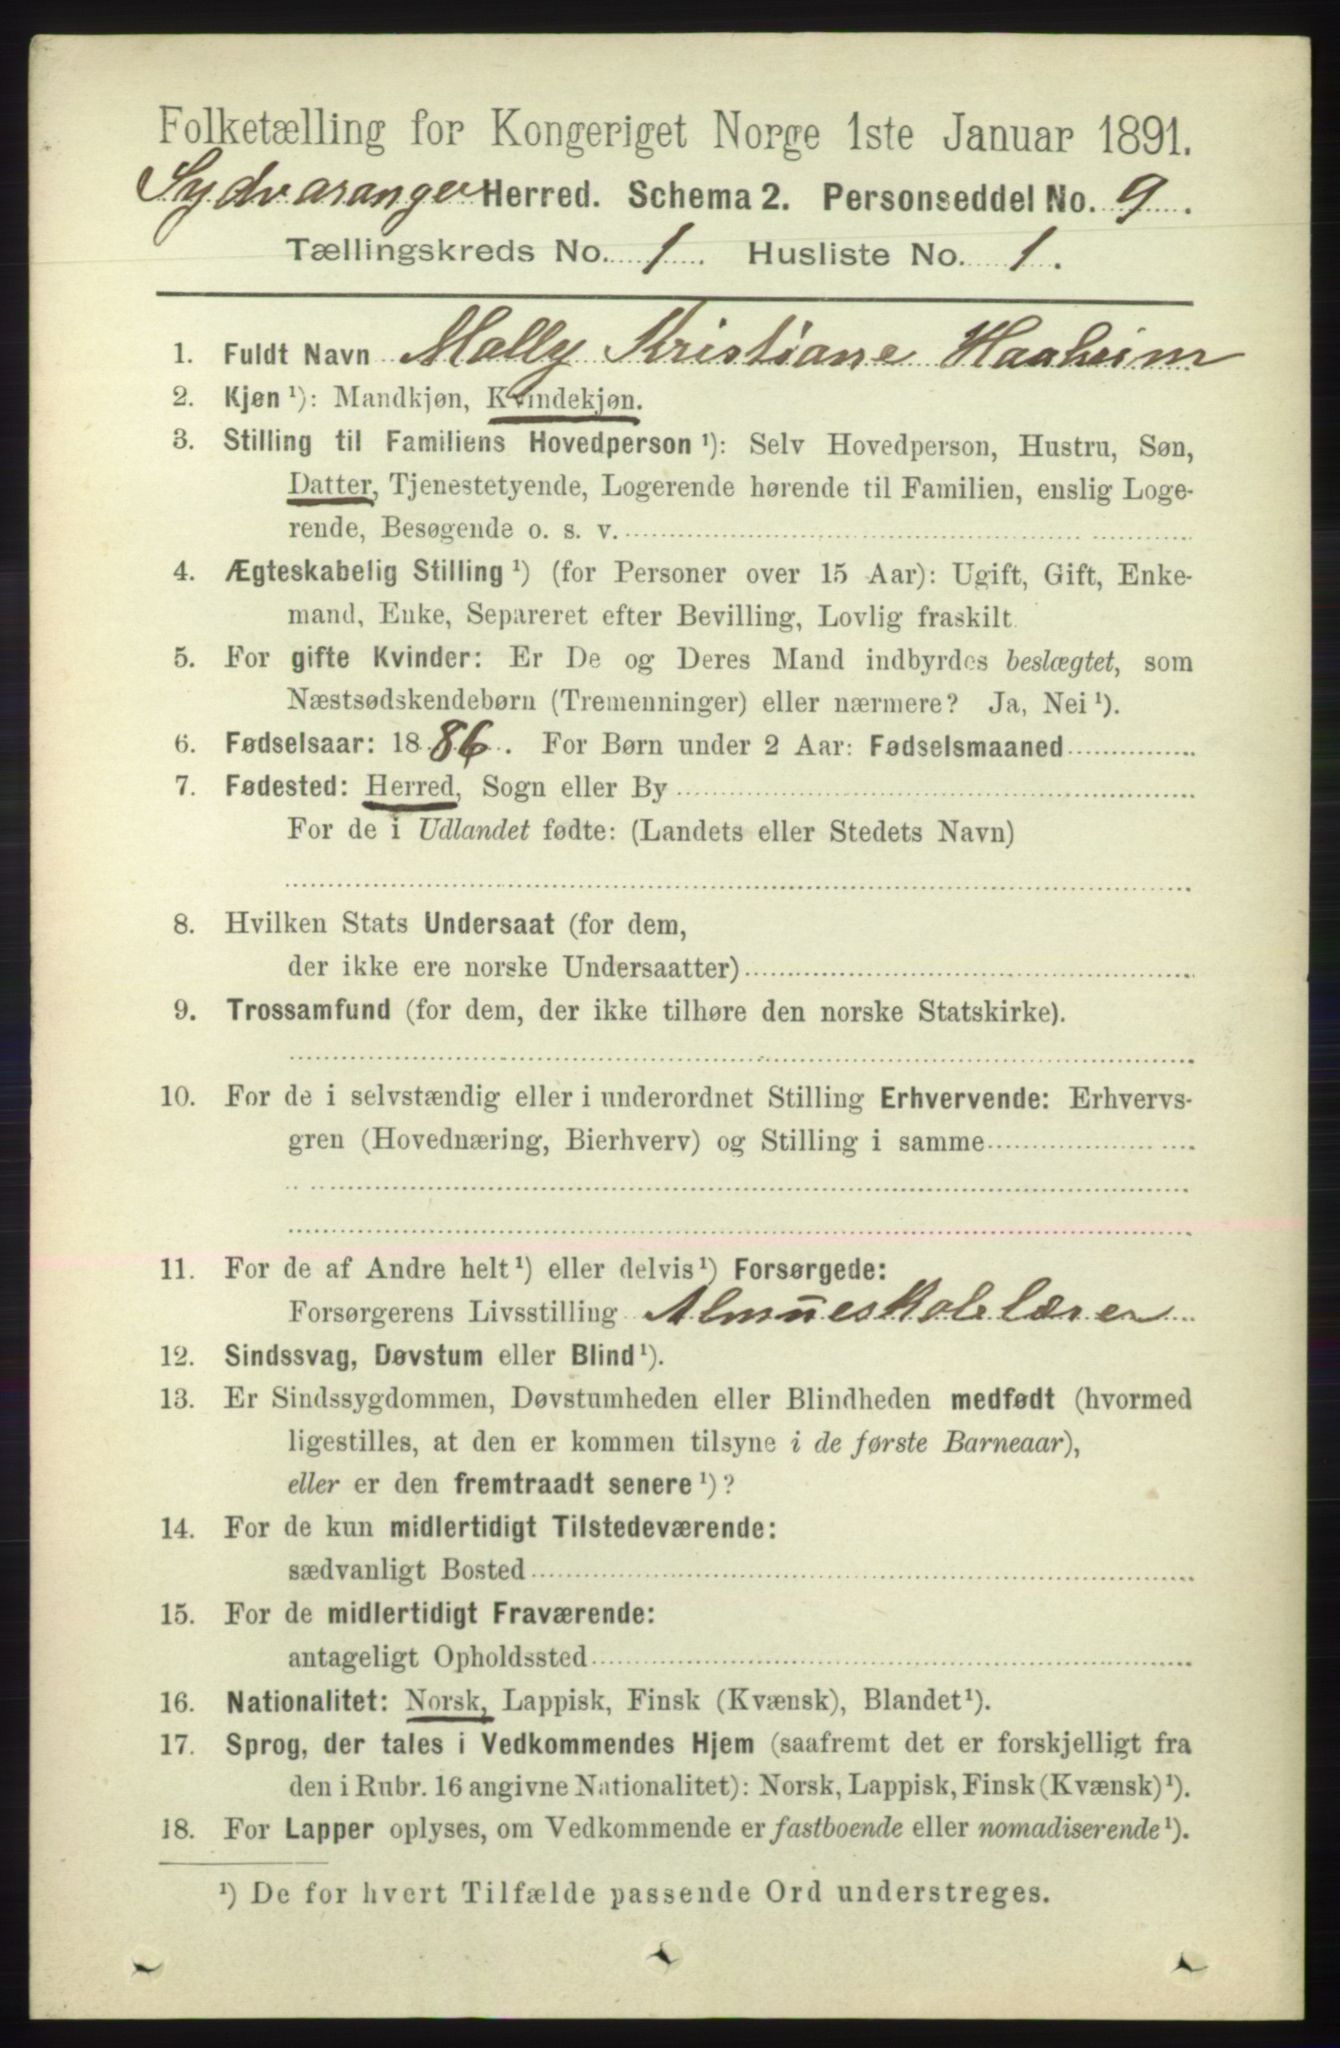 Folketælling for Kongeriget Norge 1ste Januar 1891.
Sydvaranger Herred. Schema 2. Personseddel No. 9.
Tællingskreds No. 1. Husliste No. 1.
1. Fuldt Navn Molly Kristiane Haaheim
2. Kjøn ¹): Mandkjøn, Kvindekjøn.
3. Stilling til Familiens Hovedperson ¹): Selv Hovedperson, Hustru, Søn,
Datter, Tjenestetyende, Logerende hørende til Familien, enslig Loge-
rende, Besøgende o. s. v.
4. Ægteskabelig Stilling ¹) (for Personer over 15 Aar): Ugift, Gift, Enke-
mand, Enke, Separeret efter Bevilling, Lovlig fraskilt.
5. For gifte Kvinder: Er De og Deres Mand indbyrdes beslægtet, som
Næstsødskendebørn (Tremenninger) eller nærmere? Ja, Nei ¹).
6. Fødselsaar: 1886. For Børn under 2 Aar: Fødselsmaaned
7. Fødested: Herred, Sogn eller By
For de i Udlandet fødte: (Landets eller Stedets Navn)
8. Hvilken Stats Undersaat (for dem,
der ikke ere norske Undersaatter)
9. Trossamfund (for dem, der ikke tilhøre den norske Statskirke).
10. For de i selvstændig eller i underordnet Stilling Erhvervende: Erhvervs-
gren (Hovednæring, Bierhverv) og Stilling i samme
11. For de af Andre helt ¹) eller delvis ¹) Forsørgede:
Forsørgerens Livsstilling Almueskolelærer
12. Sindssvag, Døvstum eller Blind ¹).
13. Er Sindssygdommen, Døvstumheden eller Blindheden medfødt (hvormed
ligestilles, at den er kommen tilsyne i de første Barneaar),
eller er den fremtraadt senere ¹)?
14. For de kun midlertidigt Tilstedeværende:
sædvanligt Bosted
15. For de midlertidigt Fraværende:
antageligt Opholdssted
16. Nationalitet: Norsk, Lappisk, Finsk (Kvænsk), Blandet ¹).
17. Sprog, der tales i Vedkommendes Hjem (saafremt det er forskjelligt fra
den i Rubr. 16 angivne Nationalitet): Norsk, Lappisk, Finsk (Kvænsk) ¹).
18. For Lapper oplyses, om Vedkommende er fastboende eller nomadiserende ¹).
¹) De for hvert Tilfælde passende Ord understreges.